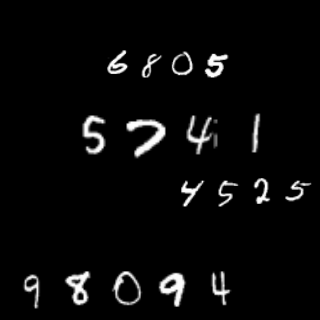 6805
5741
4525
98094